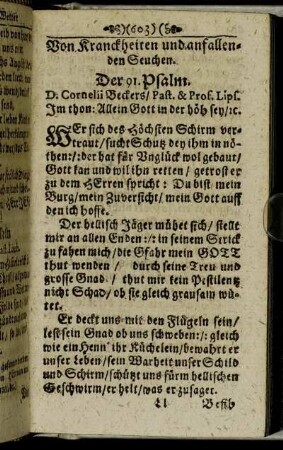 (603)
Von Kranckheiten und anfallen-
den Seuchen.
Der 91. Psalm.
D. Cornelii Beckers/ Past. & Prof. Lips.
Im thon: Allein Gott in der höh sey/ꝛc.
WEr sich des Höchsten Schirm ver-
traut/sucht Schutz bey ihm in nö-
then:/:der hat für Unglück wol gebaut/
Gott kan und wil ihn retten / getrost er
zu dem HErren spricht: Du bist mein
Burg/mein Zuversicht/mein Gott auff
den ich hoffe.
Der hellisch Jäger mühet sich/ stellt
mir an allen Enden:/: in seinem Strick
zu fahen mich/die Gfahr mein GOTT
thut wenden / durch seine Treu und
grosse Gnad / thut mir kein Pestilentz
nicht Schad/ ob sie gleich grausam wü-
tet.
Er deckt uns mit den Flügeln sein/
lest sein Gnad ob uns schweben:/: gleich
wie ein Henn ihr Küchelein/bewahrt er
unser Leben/sein Warheit unser Schild
und Schirm/schützt uns fürm hellischen
Geschwirm/er helt/was er zusaget.
Ll Befih